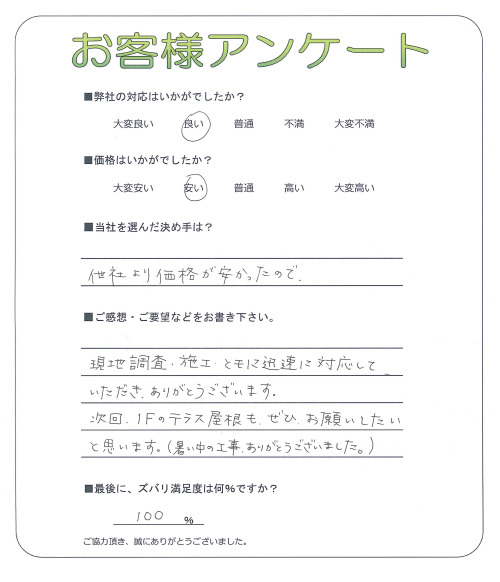 お客様アンケート
■弊社の対応はいかがでしたか？
大変良い 良い 普通 不満 大変不満
■価格はいかがでしたか？
大変安い 安い 普通 高い 大変高い
■当社を選んだ決め手は？
他社より価格が安かったので、
■ご感想・ご要望などをお書き下さい。
現地調査・施工・ともに迅速に対応して
いただき、ありがとうございます。
次回、1Fのテラス屋根も、ぜひ、お願いしたい
と思います。(暑い中の工事、ありがとうございました。)
■最後に、ズバリ満足度は何%ですか？
100 %
ご協力頂き、誠にありがとうございました。